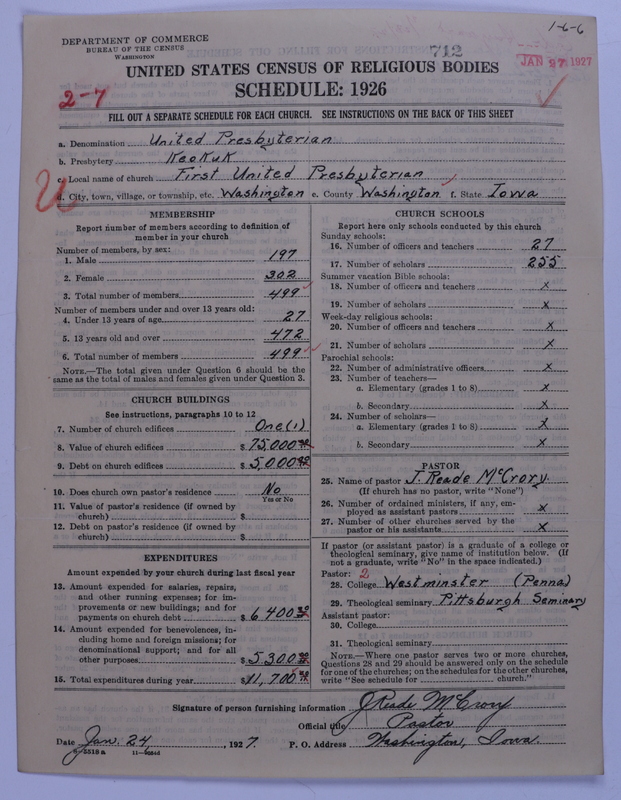 1-6-6
DEPARTMENT OF COMMERCE
BUREAU OF THE CENSUS
WASHINGTON
712
JAN 27 1927
UNITED STATES CENSUS OF RELIGIOUS BODIES
SCHEDULE: 1926
2-7
FILL OUT A SEPARATE SCHEDULE FOR EACH CHURCH. SEE INSTRUCTIONS ON THE BACK OF THIS SHEET
a. Denomination United Presbyterian
b. Presbytery Keokuk
c. Local name of church First United Presbyterian
d. City, town, village, or township, etc. Washington e. County Washington f. State Iowa
MEMBERSHIP
Report number of members according to definition of
member in your church
Number of members, by sex:
1. Male 197
2. Female 302
3. Total number of members 499
Number of members under and over 13 years old:
4. Under 13 years of age 27
5. 13 years old and over 472
6. Total number of members 499
NOTE.—The total given under Question 6 should be the
same as the total of males and females given under Question 3.
CHURCH BUILDINGS
See instructions, paragraphs 10 to 12
7. Number of church edifices One (1)
8. Value of church edifices $ 75,000
9. Debt on church edifices $ 5,000
10. Does church own pastor's residence No
Yes or No
11. Value of pastor's residence (if owned by
church) $
12. Debt on pastor's residence (if owned by
church) $
EXPENDITURES
Amount expended by your church during last fiscal year
13. Amount expended for salaries, repairs,
and other running expenses; for im-
provements or new buildings; and for
payments on church debt $ 6,400
14. Amount expended for benevolences, in-
cluding home and foreign missions; for
denominational support; and for all
other purposes $ 5300
15. Total expenditures during year $ 11,700
CHURCH SCHOOLS
Report here only schools conducted by this church
Sunday schools:
16. Number of officers and teachers 27
17. Number of scholars 255
Summer vacation Bible schools:
18. Number of officers and teachers x
19. Number of scholars x
Week-day religious schools:
20. Number of officers and teachers x
21. Number of scholars x
Parochial schools:
22. Number of administrative officers x
23. Number of teachers—
a. Elementary (grades 1 to 8) x
b. Secondary x
24. Number of scholars—
a. Elementary (grades 1 to 8) x
b. Secondary x
PASTOR
25. Name of pastor J. Reade McCrory
(If church has no pastor, write "None")
26. Number of ordained ministers, if any, em-
ployed as assistant pastors x
27. Number of other churches served by the
pastor or his assistants x
If pastor (or assistant pastor) is a graduate of a college or
theological seminary, give name of institution below. (If
not a graduate, write "No" in the space indicated.)
Pastor: 2
28. College Westminster (Penna)
29. Theological seminary Pittsburgh Seminary
Assistant pastor:
30. College
31. Theological seminary
NOTE.—Where one pastor serves two or more churches,
Questions 28 and 29 should be answered only on the schedule
for one of the churches; on the schedules for the other churches,
write "See schedule for church."
Signature of person furnishing information J Reade McCrory
Official title Pastor
Date Jan. 24, 1927. P. O. Address Washington, Iowa.